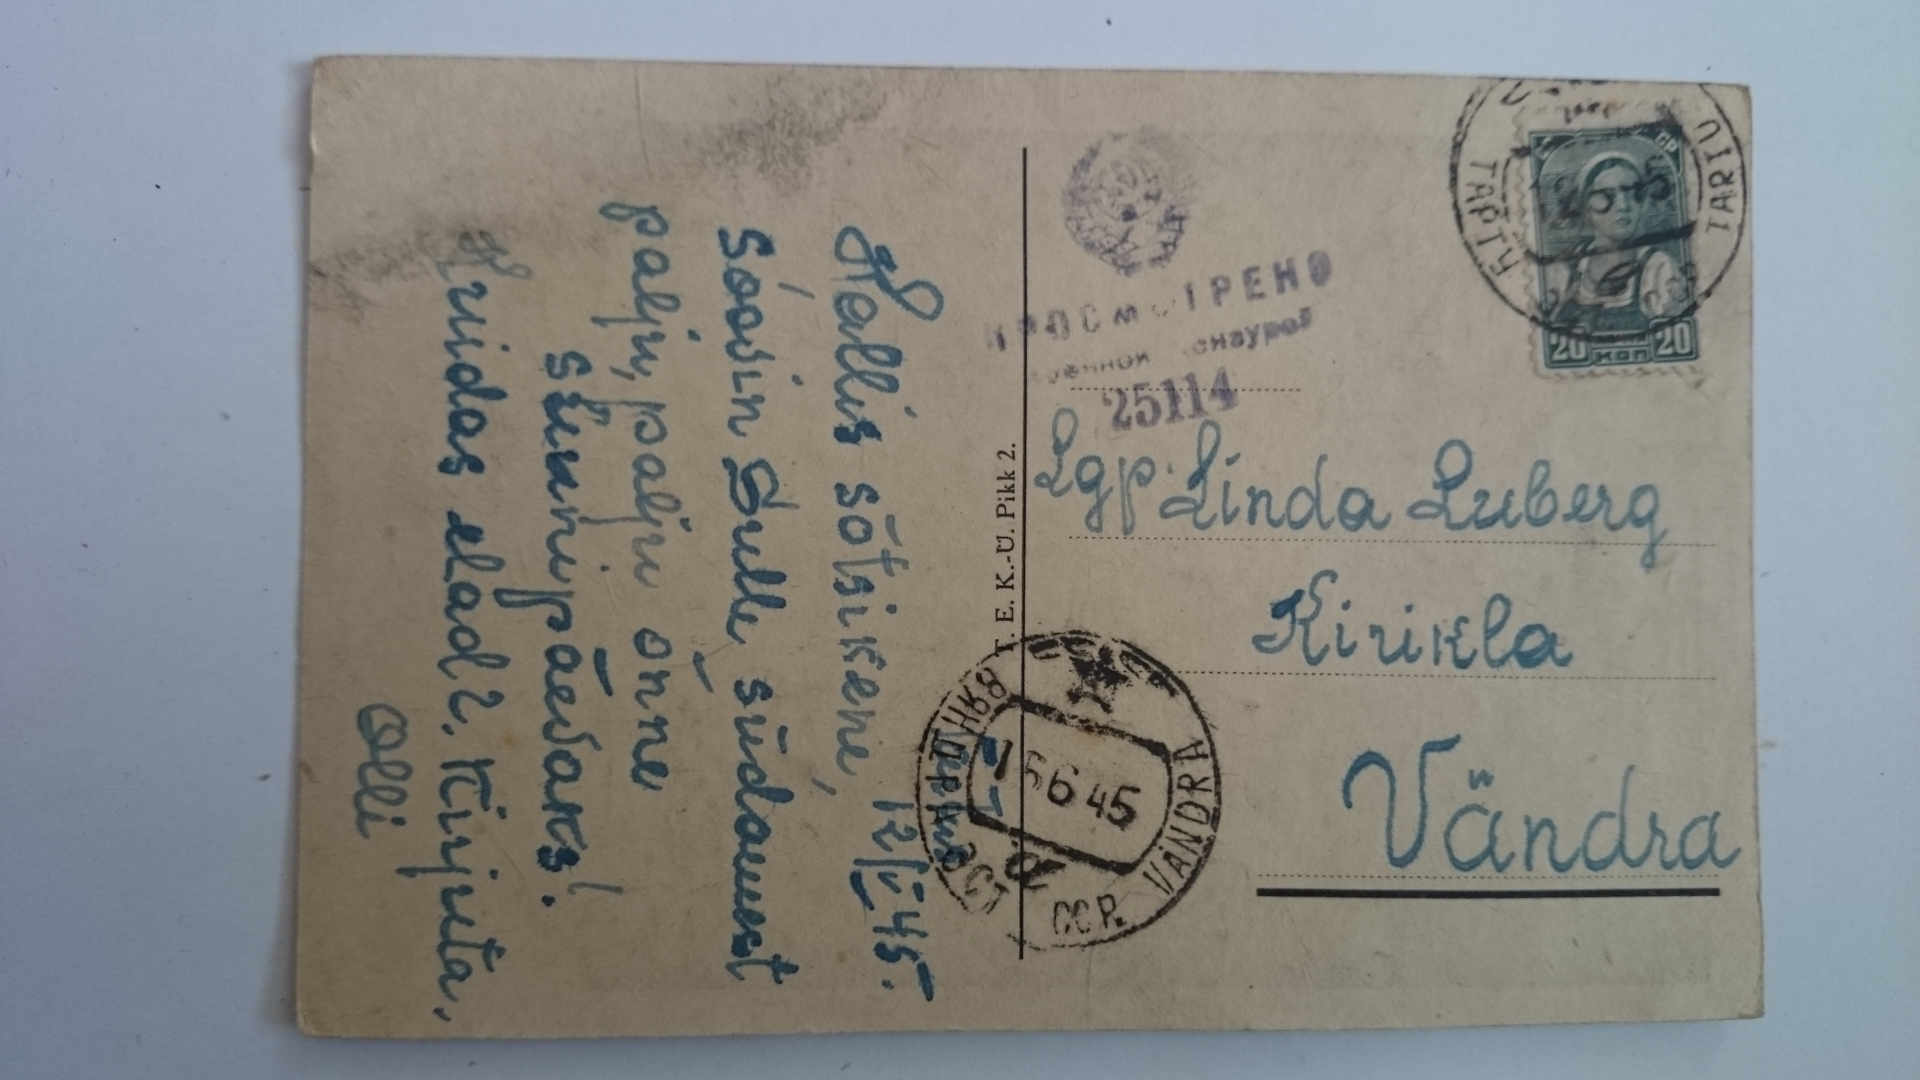 Tartus
12/VI 45.
Kallis sõtsikene,
Soovin Sulle südamest
palju, palju õnne
sünnipäevaks!
Kuidas elad? Kirjuta.
Olli
T. E. K.-Ü. Pikk 2.
ПРОСМОТРЕНО
Военной Цензурой
25114
ТАРТУ TARTU
12 6 45
20 КОП 20
Lgp. Linda Luberg
Kirikla
Vändra
ВЯНДРА
6 45
VÄNDRA